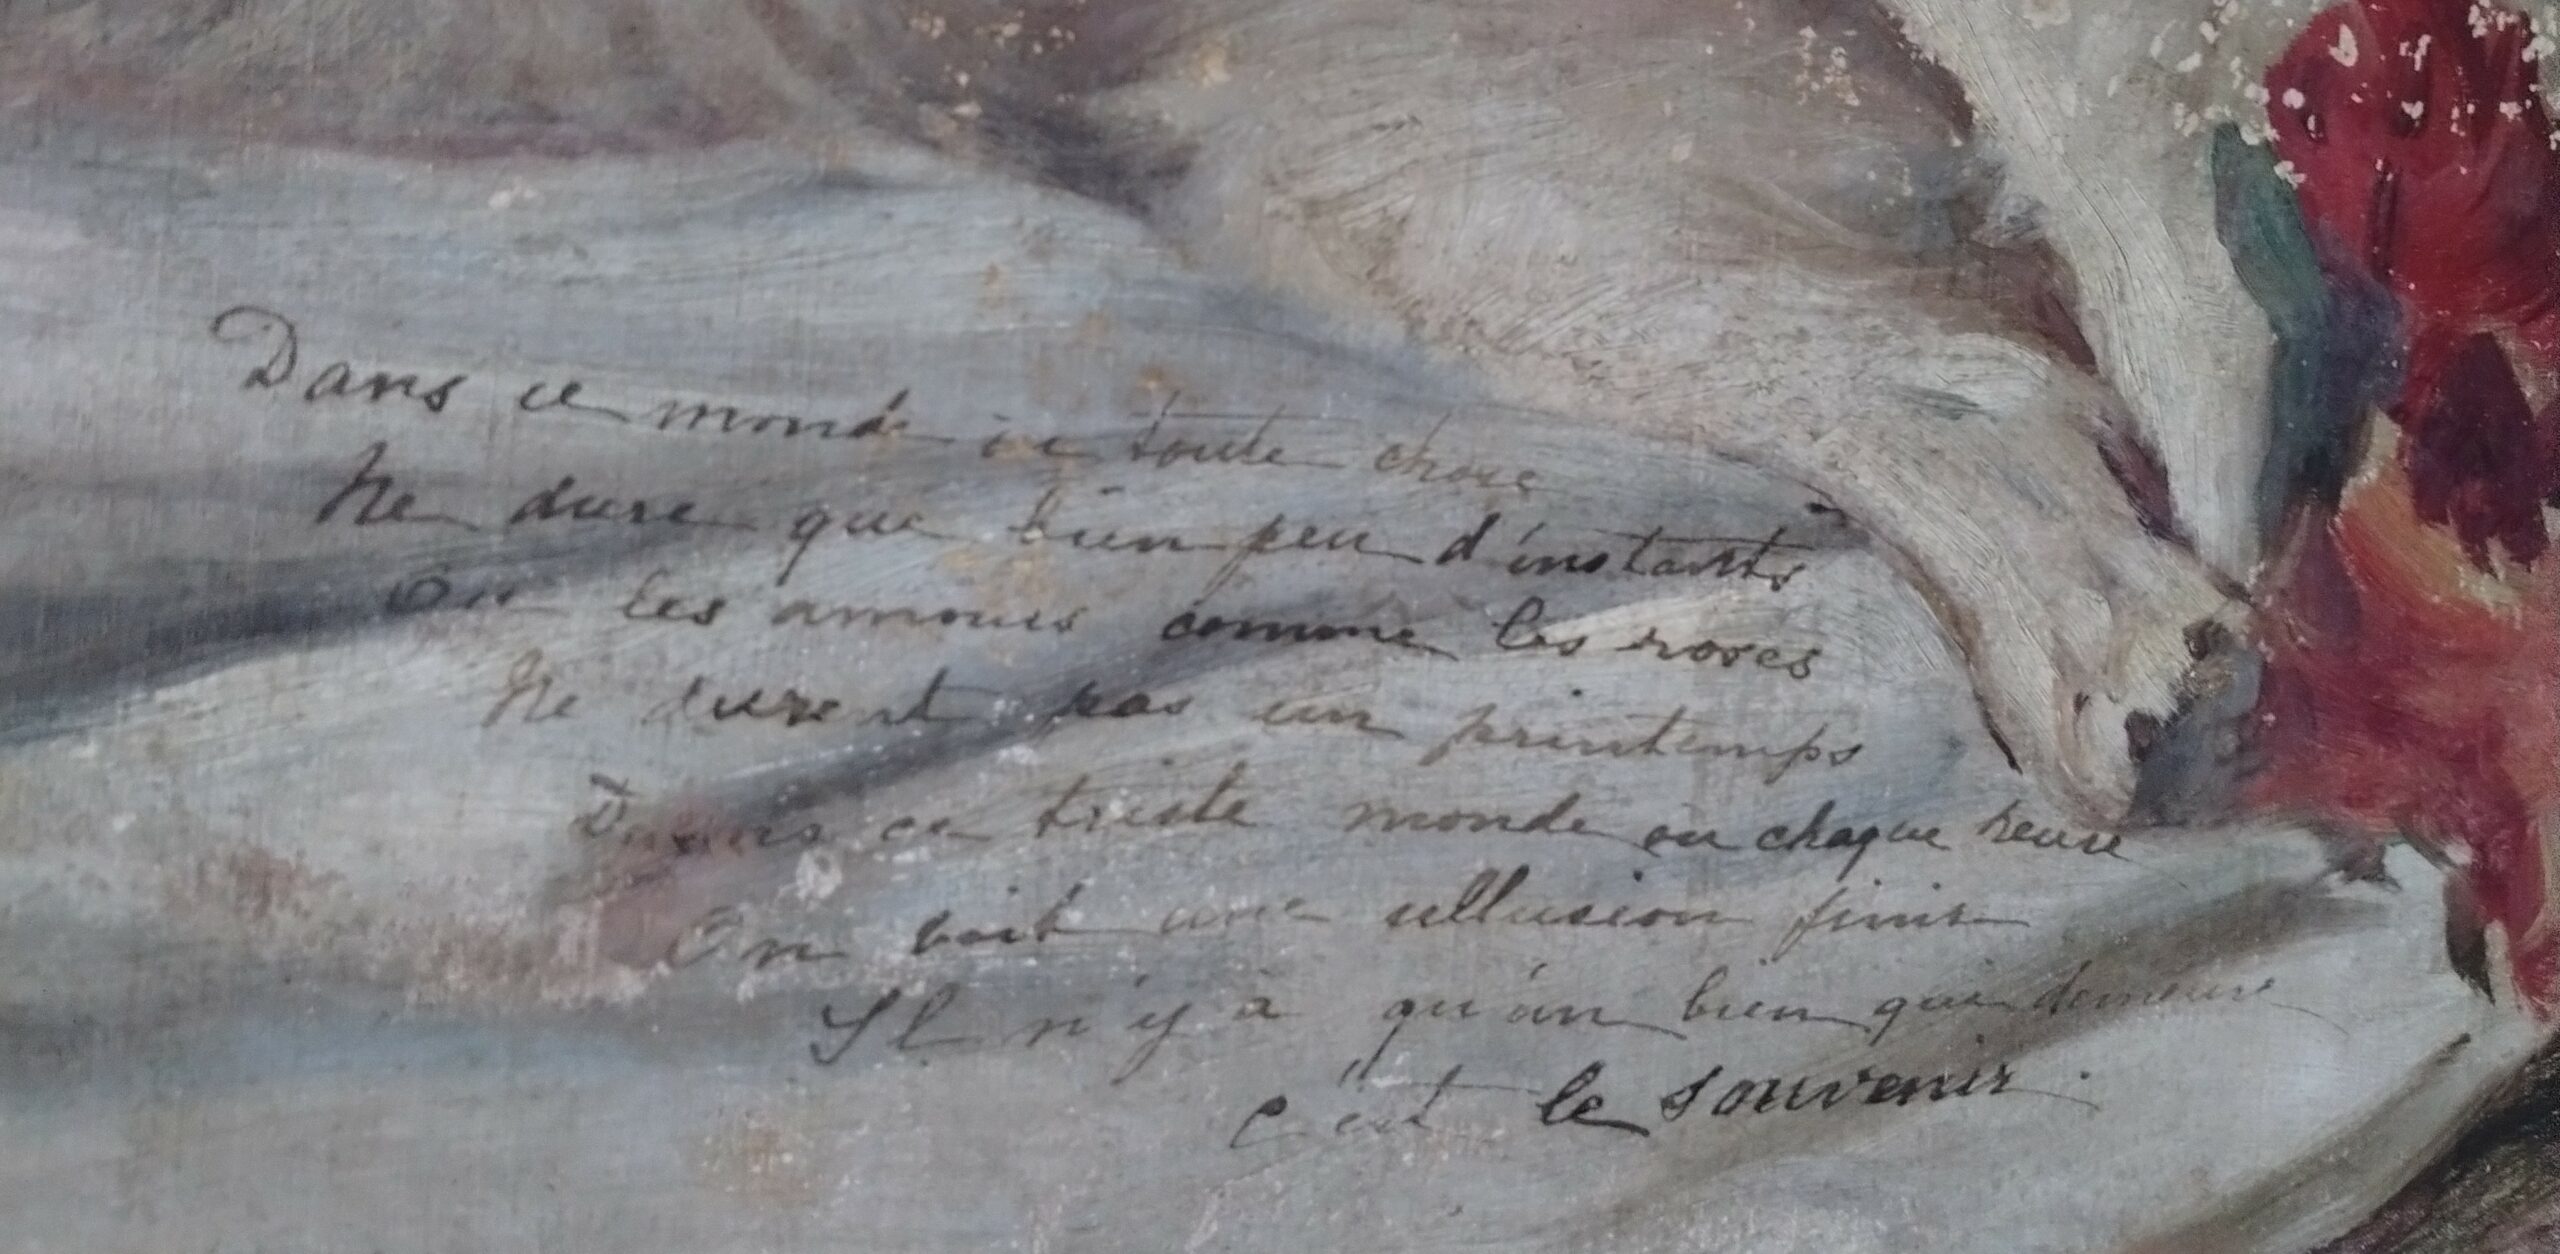 Dans ce monde où toute chose
Ne dure que bien peu d'instants
Où les amours comme les roses
Ne durent pas un printemps
Dans ce triste monde ou chaque heure
On voit une illusion finir
Il n'y a qu'un bien qui demeure
c'est le souvenir.